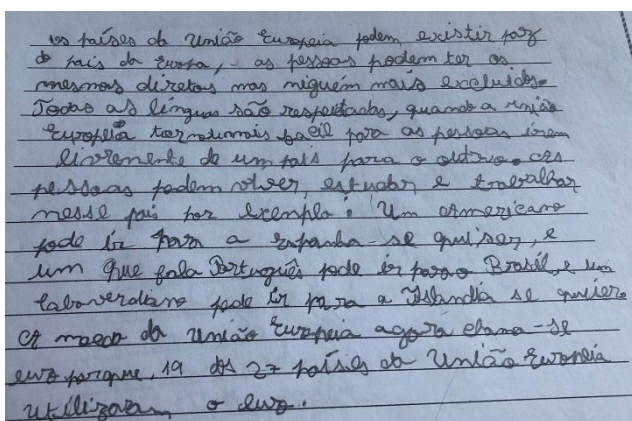 os países da União Europeia podem existir paz
do país da Europa, as pessoas podem ter os
mesmos diretos mas niguém mais excluidos.
Todas as línguas são respeitadas, quando a união
Europeia tornou mais facil para as pessoas irem
livremente de um país para o outro. As
pessoas podem viver, estudar e trabalhar
nesse país por exemplo: Um Americano
pode ir para a Espanha se quiser, e
um que fala Português pode ir para o Brasil, e um
caboverdiano pode ir para a Islandia se quiser.
A moeda da União Europeia agora chama-se
euro porque, 19 dos 27 países da União Europeia
utilizaram o euro.